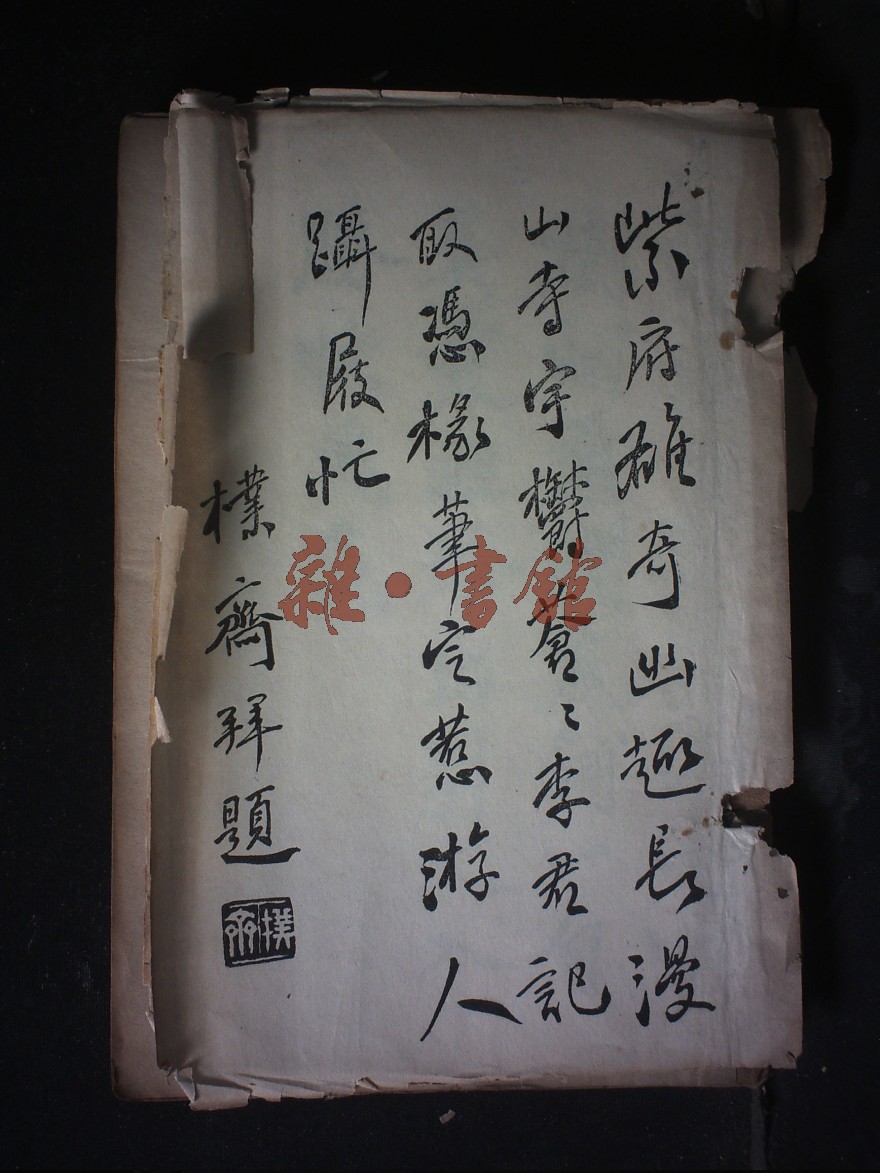 紫府雄奇幽趣長漫
山寺宇欝蒼〻李君記
取憑椽筆定惹游人
躡屐忙
樸齋拜題
樸齋
雜·書館